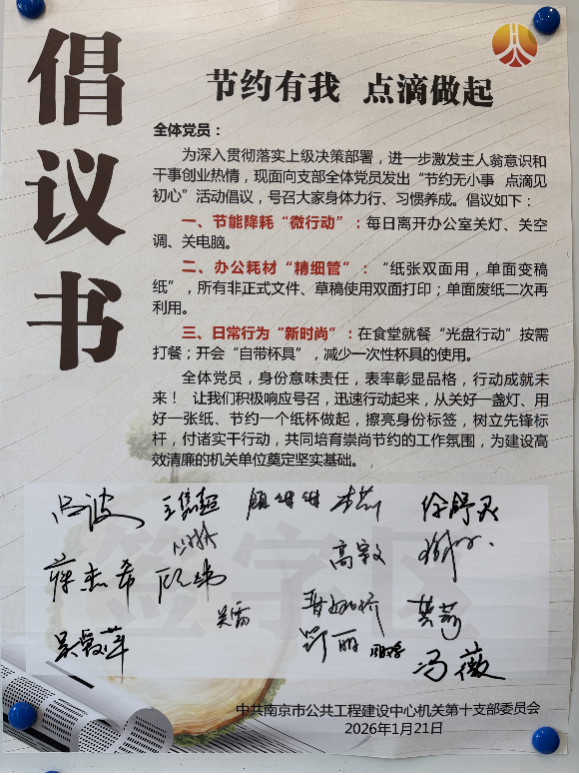 倡议书
节约有我 点滴做起
全体党员：
为深入贯彻落实上级决策部署，进一步激发主人翁意识和
干事创业热情，现面向支部全体党员发出“节约无小事 点滴见
初心”活动倡议，号召大家身体力行、习惯养成。倡议如下：
一、节能降耗“微行动”：每日离开办公室关灯、关空
调、关电脑。
二、办公耗材“精细管”：“纸张双面用，单面变稿
纸”，所有非正式文件、草稿使用双面打印；单面废纸二次再
利用。
三、日常行为“新时尚”：在食堂就餐“光盘行动”按需
打餐；开会“自带杯具”，减少一次性杯具的使用。
全体党员，身份意味责任，表率彰显品格，行动成就未
来！ 让我们积极响应号召，迅速行动起来，从关好一盏灯、用
好一张纸、节约一个纸杯做起，擦亮身份标签，树立先锋标
杆，付诸实干行动，共同培育崇尚节约的工作氛围，为建设高
效清廉的机关单位奠定坚实基础。
签字区
吕波 顾维维 徐舒灵
高敏
蒋志希
吴雷
冯薇
中共南京市公共工程建设中心机关第十支部委员会
2026年1月21日